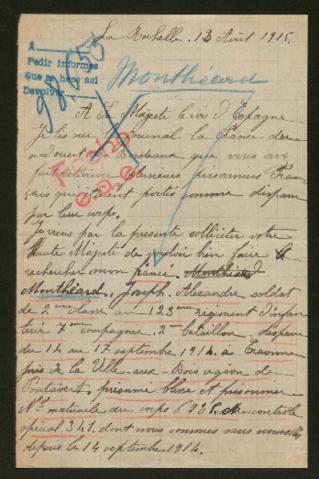 La Rochelle. 13 Avril 1915.
A
Pedir informes
que se hace asi
Devolver
98653
Monthéard
A Sa Majesté le roi d'Espagne
Je lis sur le journal la France de
Bordeaux que vous avez
fait plusieurs prisonniers Fran
çais qui étaient portés comme disparu
par leur corps.
Je viens par la présente solliciter votre
Haute Majesté de vouloir bien faire
rechercher mon
Monthéard. Joseph. Alexandre soldat
de 2ème classe au 123ème regiment d'infan
terie 7ème compagnie. 2e bataillon. disparu
du 14 au 17 septembre 1914. à Craonne
près de la Ville-aux-Bois region de
Pontavert. présumé blessé et prisonnier
No matricule du corps contrôle
spécial 341. dont nous sommes sans nouvelles
depuis le 14 septembre 1914.